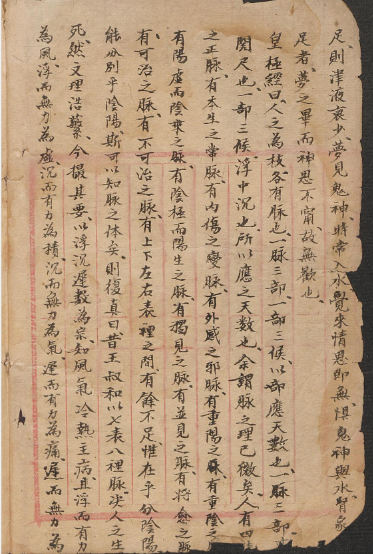 足則津液衰少夢見鬼神時常入水覺來情思即無惧鬼神與水腎象
足者夢之畢而神思不甯故無歡也
皇極經曰人之為枝各有脉也一脉三部一部三候以部應天數也一脉三部
関尺也一部三候浮中沉也所以應之天数也余謂脉之理已微矣人有四
之正脉有本生之常脉有内傷之變脉有外感之邪脉有重陽之脉有重陰之
有陽虚而陰乗之脉有陰極而陽生之脉有獨見之脉有並見之脉有將愈之脉
有可治之脉有不可治之脉有上下左右表裡之間有餘不足惟在乎分陰陽
能分別乎陰陽斯可以知脉之体矣則復真曰昔王叔和以七表八裡脉决人之生
死然文理浩蘩今撮其要以浮沉遲数為宗如風氣冷熱主病且浮而有力
為風浮而無力為虚沉而有力為積沉而無力為氣遲而有力為痛遲而無力為